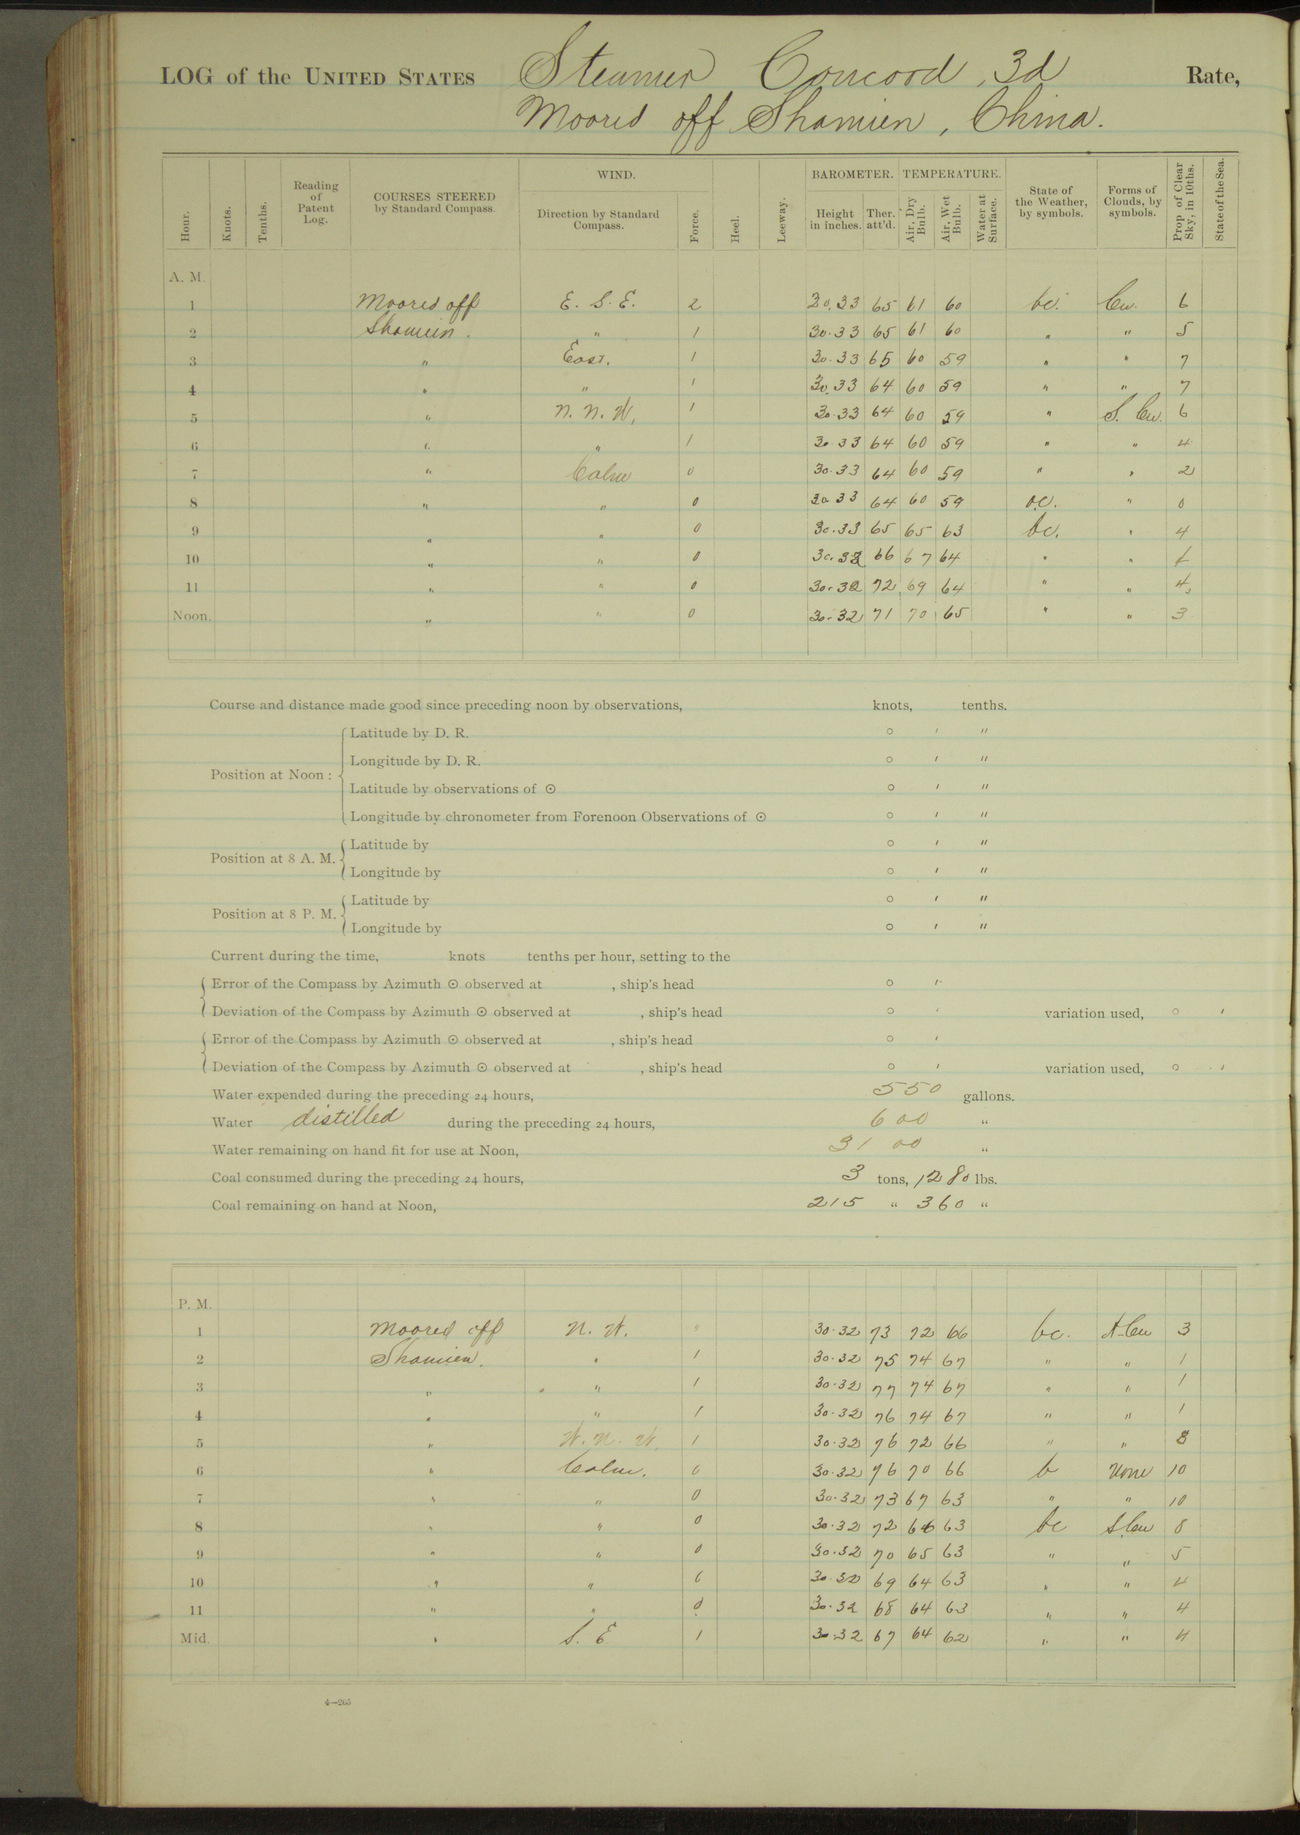 LOG of the UNITED STATES Steamer Concord, 3d Rate,
Moored off Shamien, China.
Hour. Knots. Tenths. Reading of Patent Log. COURSES STEERED by Standard Compass. WIND. Direction by Standard Compass. Force. Heel. Leeway. BAROMETER. Height in inches. Ther. att'd. TEMPERATURE. Air, Dry Bulb. Air, Wet Bulb. Water at Surface. State of the Weather, by symbols. Forms of Clouds, by symbols. Prop. of Clear Sky, in 10ths. State of the Sea.
A. M.
1 Moored off E. S. E. 2 30.33 65 61 60 bc. Cu. 6
2 Shamien. " 1 30.33 65 61 60 " " 5
3 " East. 1 30.33 65 60 59 " " 7
4 " " 1 30.33 64 60 59 " " 7
5 " N. N. W. 1 30.33 64 60 59 " S. Cu. 6
6 " " 1 30.33 64 60 59 " " 4
7 " Calm 0 30.33 64 60 59 " " 2
8 " " 0 30.33 64 60 59 o.c. " 0
9 " " 0 30.33 65 65 63 bc. " 4
10 " " 0 30.32 66 67 64 " "
11 " " 0 30.32 72 69 64 " " 4
Noon. " " 0 30.32 71 70 65 " " 3
Course and distance made good since preceding noon by observations, knots, tenths.
Position at Noon :
Latitude by D. R. ° ′ ″
Longitude by D. R. ° ′ ″
Latitude by observations of ☉ ° ′ ″
Longitude by chronometer from Forenoon Observations of ☉ ° ′ ″
Position at 8 A. M.
Latitude by ° ′ ″
Longitude by ° ′ ″
Position at 8 P. M.
Latitude by ° ′ ″
Longitude by ° ′ ″
Current during the time, knots tenths per hour, setting to the
Error of the Compass by Azimuth ☉ observed at , ship's head ° ′
Deviation of the Compass by Azimuth ☉ observed at , ship's head ° ′ variation used, ° ′
Error of the Compass by Azimuth ☉ observed at , ship's head ° ′
Deviation of the Compass by Azimuth ☉ observed at , ship's head ° ′ variation used, ° ′
Water expended during the preceding 24 hours, 550 gallons.
Water distilled during the preceding 24 hours, 600 "
Water remaining on hand fit for use at Noon, 3100 "
Coal consumed during the preceding 24 hours, 3 tons, 1280 lbs.
Coal remaining on hand at Noon, 215 " 360 "
P. M.
1 Moored off N. W. " 30.32 73 72 66 bc. A-Cu 3
2 Shamien. " 1 30.32 75 74 67 " " 1
3 " " 1 30.32 77 74 67 " " 1
4 " " 1 30.32 76 74 67 " " 1
5 " W. N. W. 1 30.32 76 72 66 " " 8
6 " Calm. 0 30.32 76 70 66 b None 10
7 " " 0 30.32 73 67 63 " " 10
8 " " 0 30.32 72 66 63 bc S. Cu 8
9 " " 0 30.32 70 65 63 " " 5
10 " " 0 30.32 69 64 63 " " 4
11 " " 0 30.32 68 64 63 " " 4
Mid. " S. E 1 30.32 67 64 62 " " 4
4—265